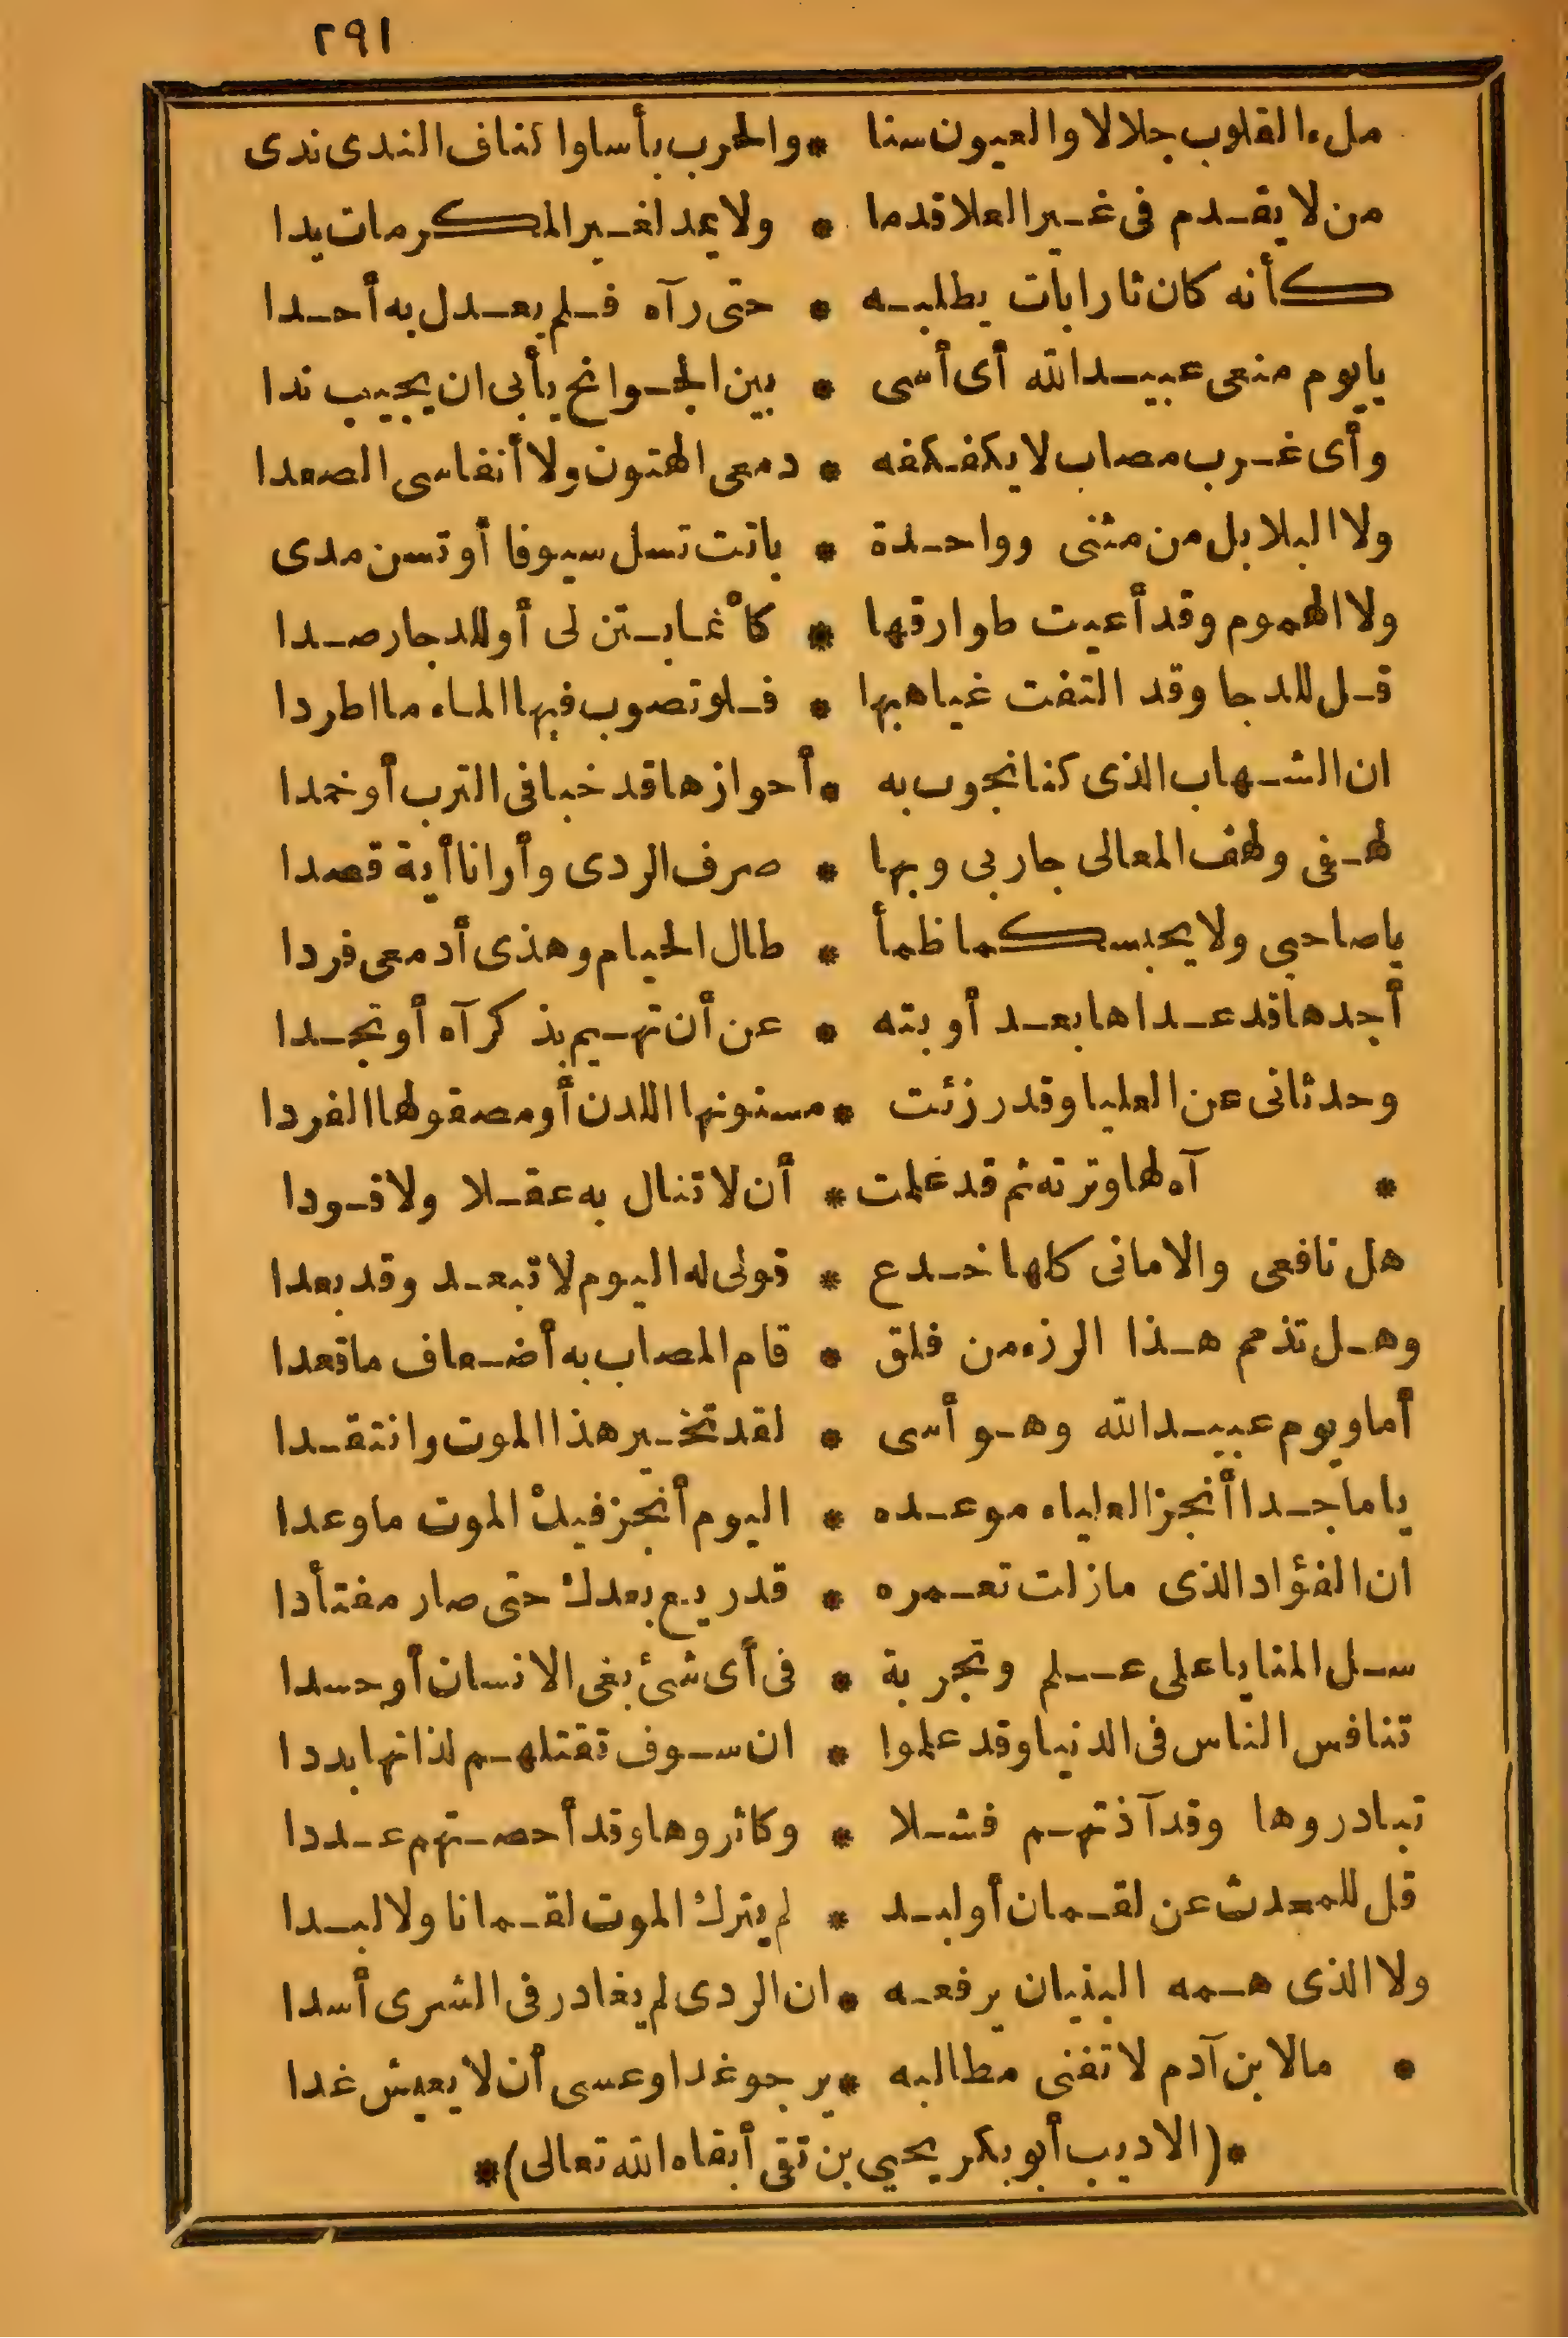 ٢٩١
ملء القلوب جلالا والعيون سنا * والحرب بأسا واكناف الندى ندى
من لا يقدم فى غير العلا قدما * ولا يمد لغير المكرمات يدا
كأنه كان ثارا بات يطلبه * حتى رآه فلم يعدل به أحدا
يا يوم منعى عبيد الله أى أسى * بين الجوانح يأبى ان يجيب ندا
وأى غرب مصاب لا يكفكفه * دمعى الهتون ولا أنفاسى الصعدا
ولا البلابل من مثنى وواحدة * باتت تسل سيوفا أو تسن مدى
ولا الهموم وقد أعيت طوارقها * كأنما بتن لى أو للدجا رصدا
قل للدجا وقد التفت غياهبها * فلو تصوب فيها الماء ما اطردا
ان الشهاب الذى كنا نجوب به * أحوازها قد خبا فى الترب أو خمدا
لهفى ولهف المعالى جار بى وبها * صرف الردى وأرانا أية قصدا
يا صاحبى ولا يحبسكما ظمأ * طال الحيام وهذى أدمعى فردا
أجدها قد عداها بعد أوبته * عن أن تهيم بذكرآه أو تجدا
وحدثانى عن العليا وقد رزئت * مسنونها اللدن أو مصقولها الفردا
* آه لها وترته ثم قد علمت * أن لا تنال به عقلا ولا قودا
هل نافعى والامانى كلها خدع * قولى له اليوم لا تبعد وقد بعدا
وهل تذمم هذا الرزء من فلق * قام المصاب به أضعاف ما قعدا
أما ويوم عبيد الله وهو أسى * لقد تخير هذا الموت وانتقدا
يا ماجدا أنجز العلياء موعده * اليوم أنجز فيك الموت ما وعدا
ان الفؤاد الذى مازلت تعمره * قد ريع بعدك حتى صار مفتأدا
سل المنايا على علم وتجربة * فى أى شئ بغى الانسان أو حسدا
تنافس الناس فى الدنيا وقد علموا * ان سوف تقتلهم لذاتها بددا
تبادروها وقد آذتهم فشلا * وكاثروها وقد أحصتهم عددا
قل للمحدث عن لقمان أو لبد * لم يترك الموت لقمانا ولا لبدا
ولا الذى همه البنيان يرفعه * ان الردى لم يغادر فى الشرى أسدا
* ما لابن آدم لا تفنى مطالبه * يرجو غدا وعسى أن لا يعيش غدا
*(الاديب أبو بكر يحيى بن تقى أبقاه الله تعالى)*